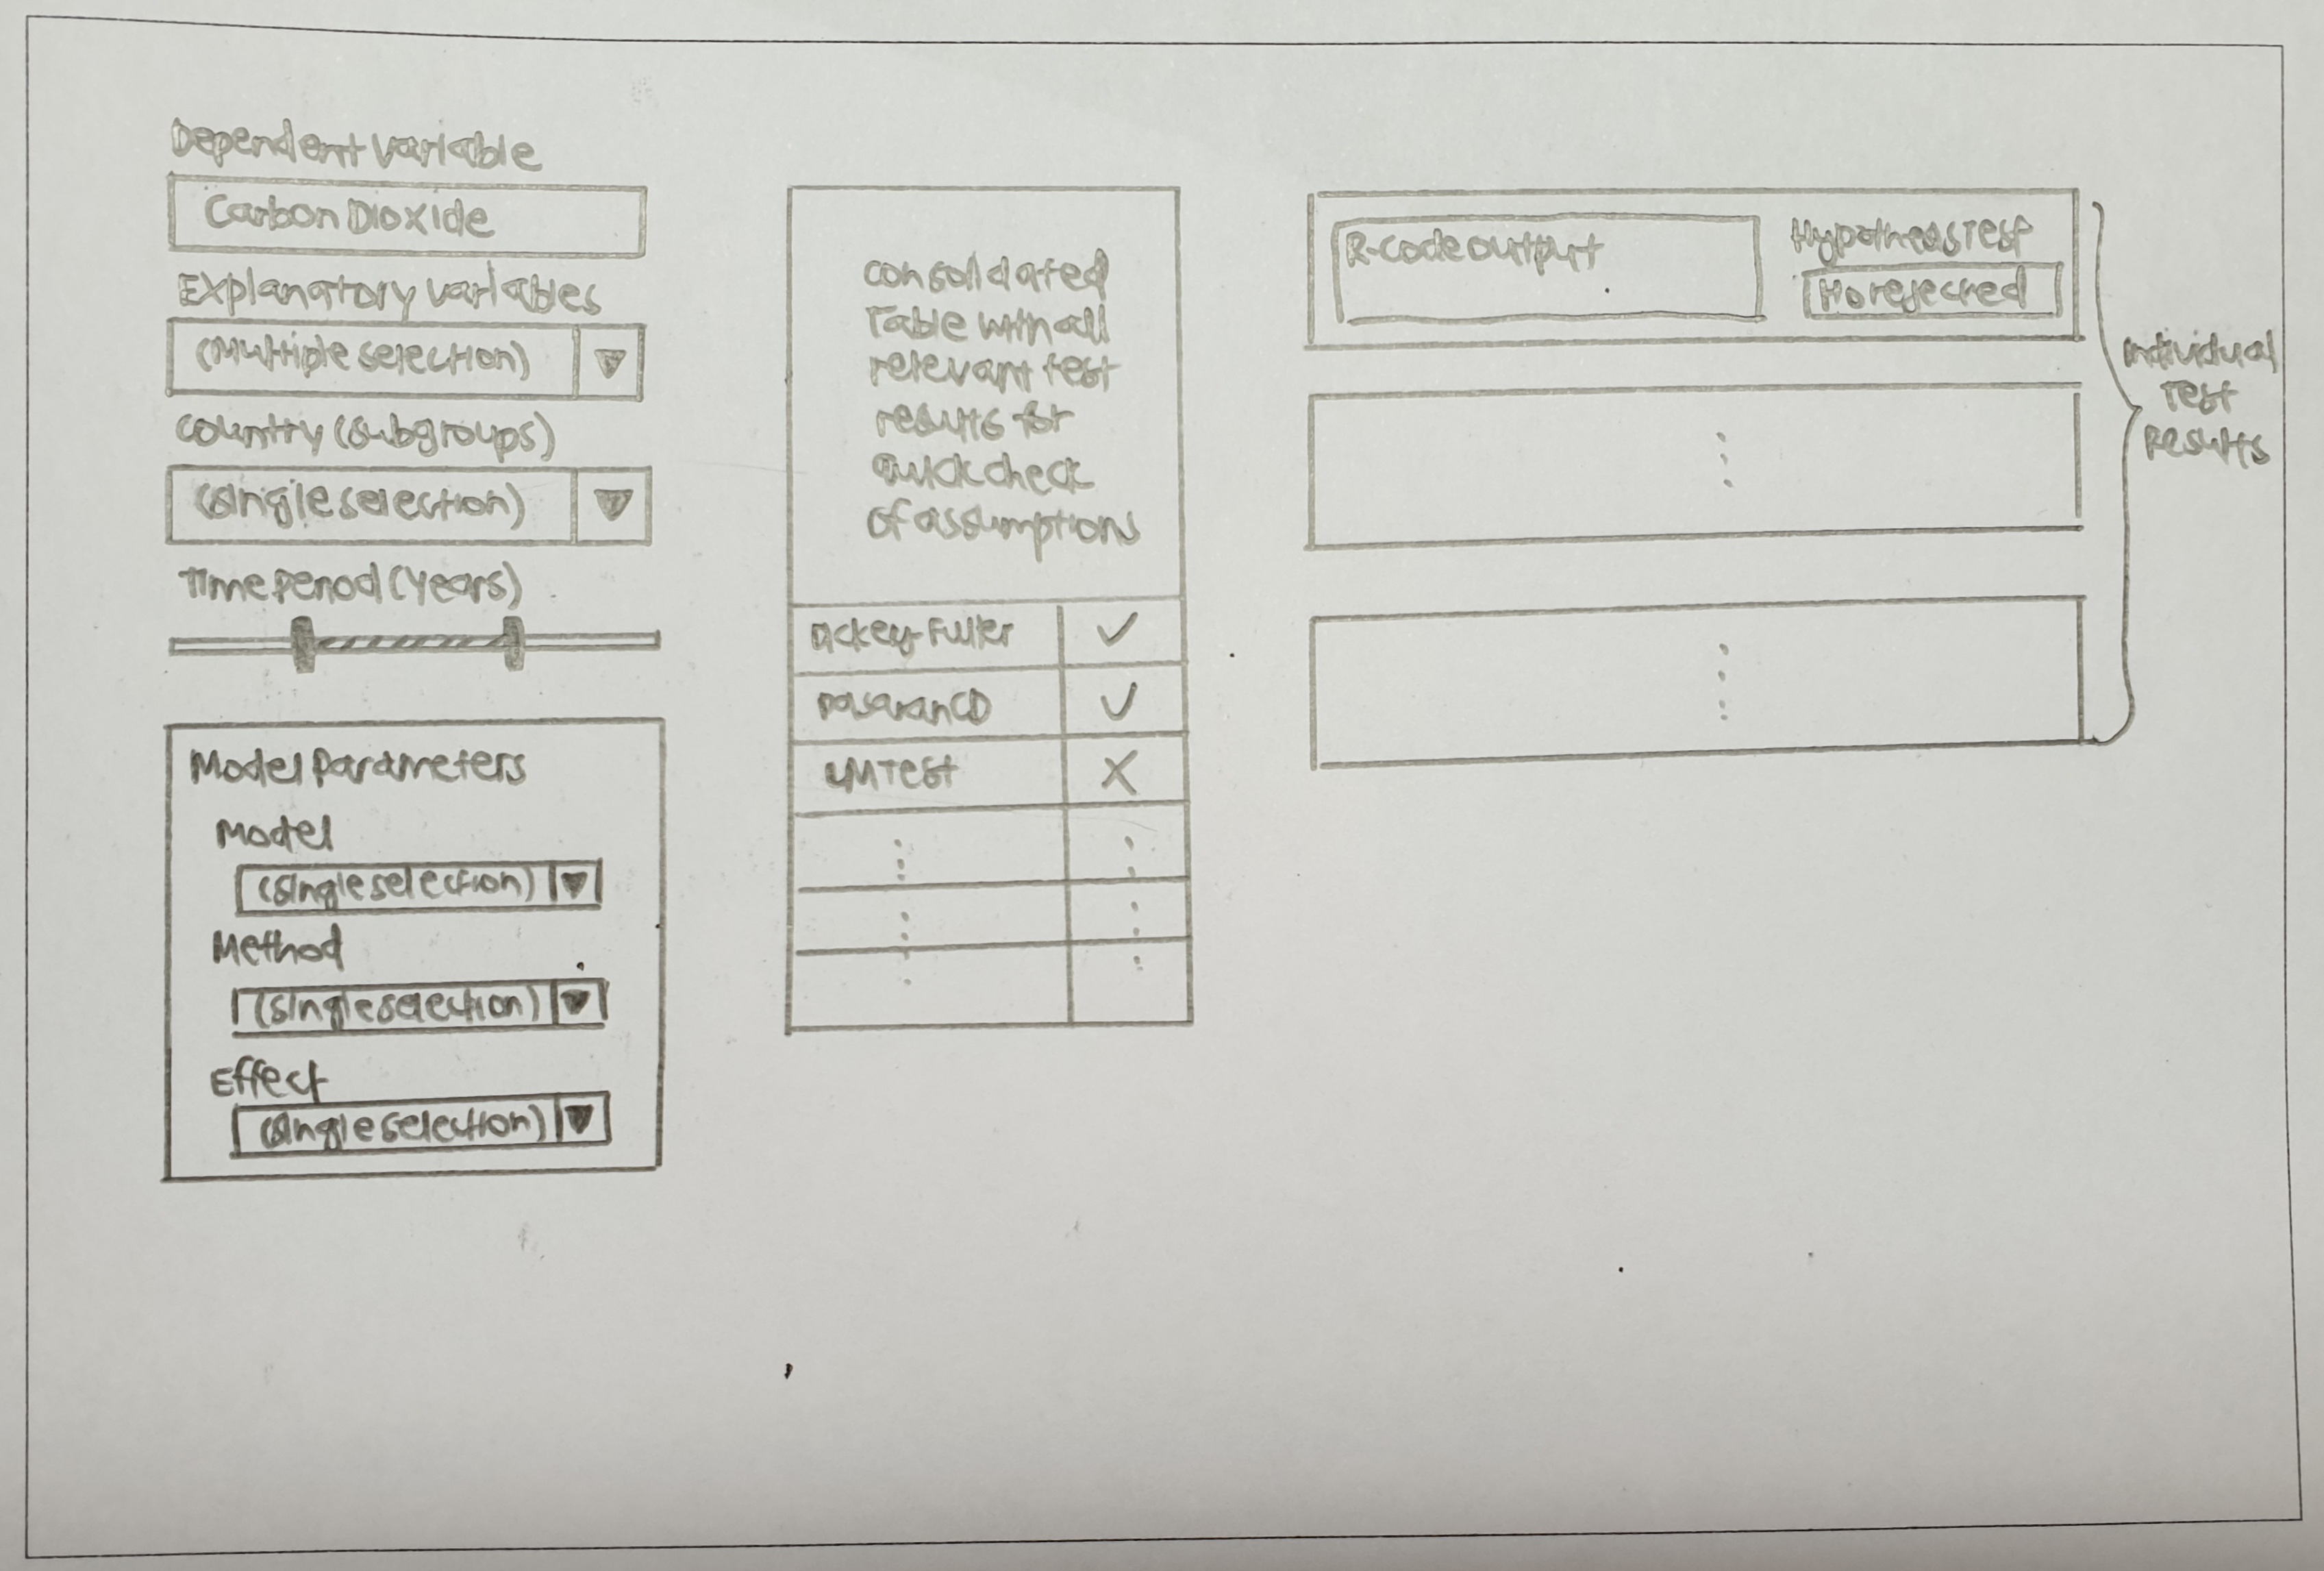 Dependent Variable
Carbon Dioxide
Explanatory Variables
(Multiple selection)
Country (subgroups)
(single selection)
Time Period (Years)
Model Parameters
Model
(single selection)
Method
(single selection)
Effect
(single selection)
Consolidated
Table with all
relevant test
results for
quick check
of assumptions
Dickey-Fuller ✓
Pasaran CD ✓
LM Test X
R-Code output
Hypothesis Test
H0 rejected
Individual
Test
Results